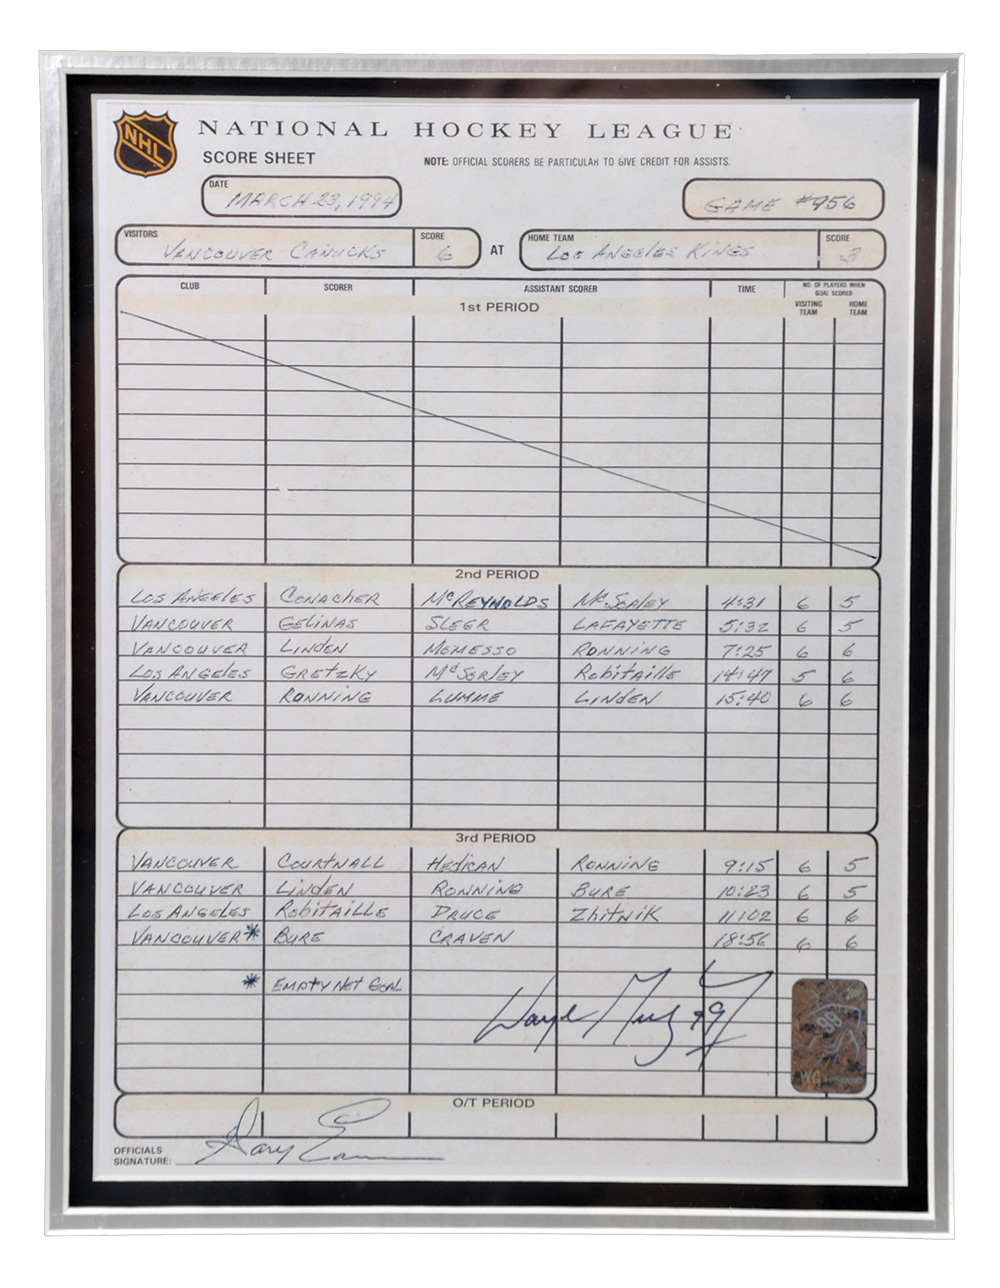 NHL
NATIONAL HOCKEY LEAGUE
SCORE SHEET NOTE: OFFICIAL SCORERS BE PARTICULAR TO GIVE CREDIT FOR ASSISTS.
DATE
MARCH 23, 1994 GAME #956
VISITORS SCORE HOME TEAM SCORE
VANCOUVER CANUCKS 6 AT LOS ANGELES KINGS 3
CLUB SCORER ASSISTANT SCORER TIME NO. OF PLAYERS WHEN GOAL SCORED
VISITING TEAM HOME TEAM
1st PERIOD
2nd PERIOD
LOS ANGELES CONACHER McREYNOLDS McSORLEY 4:31 6 5
VANCOUVER GELINAS SLEGR LAFAYETTE 5:32 6 5
VANCOUVER LINDEN MOMESSO RONNING 7:25 6 6
LOS ANGELES GRETZKY McSORLEY Robitaille 14:47 5 6
VANCOUVER RONNING LUMME LINDEN 15:40 6 6
3rd PERIOD
VANCOUVER COURTNALL HEDICAN RONNING 9:15 6 5
VANCOUVER LINDEN RONNING BURE 10:23 6 5
LOS ANGELES Robitaille DRUCE Zhitnik 11:02 6 6
VANCOUVER* BURE CRAVEN 18:56 6 6
* EMPTY NET GOAL
Wayne Gretzky 99
99
WG
O/T PERIOD
OFFICIALS
SIGNATURE: Gary